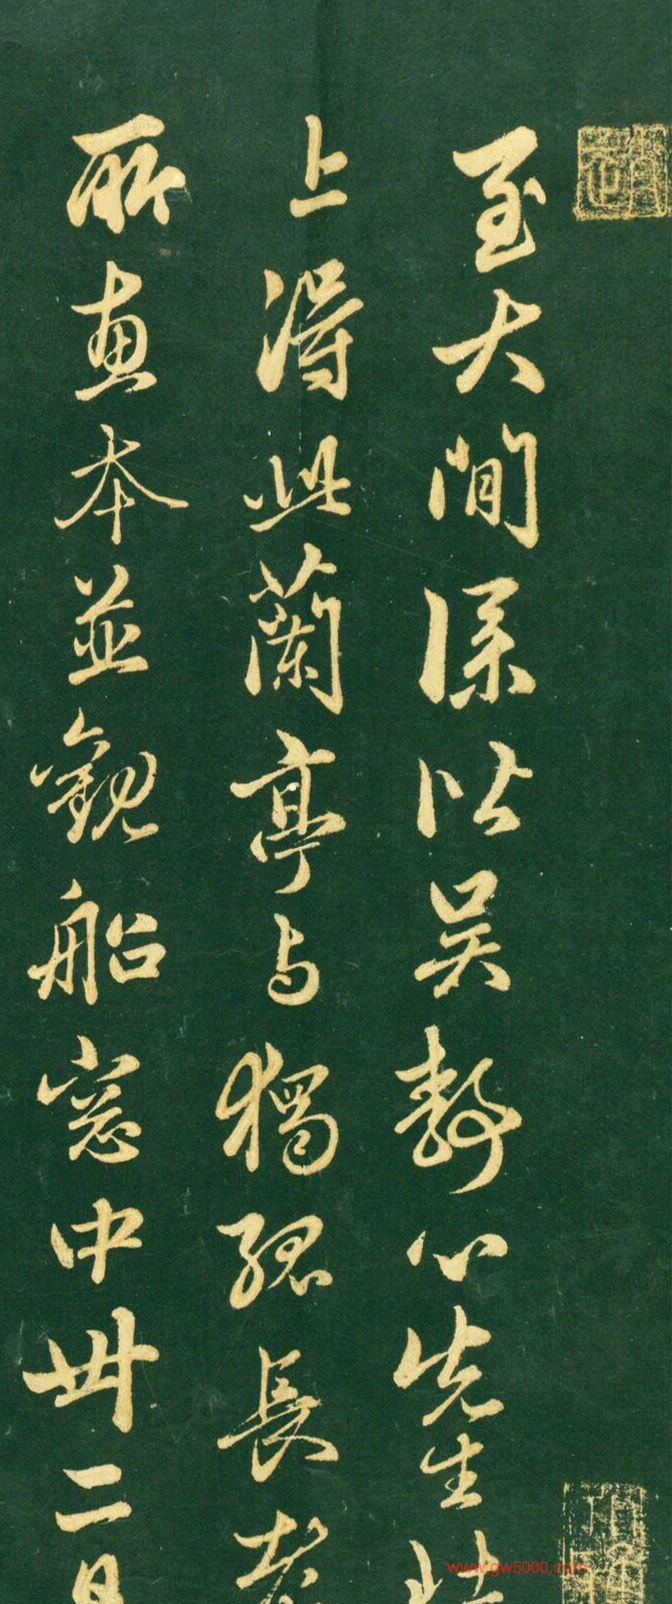 至大間以吳靜心先生
上得此蘭亭与獨孤長老
所惠本並觀船窓中卅二日
www.gw5000.com